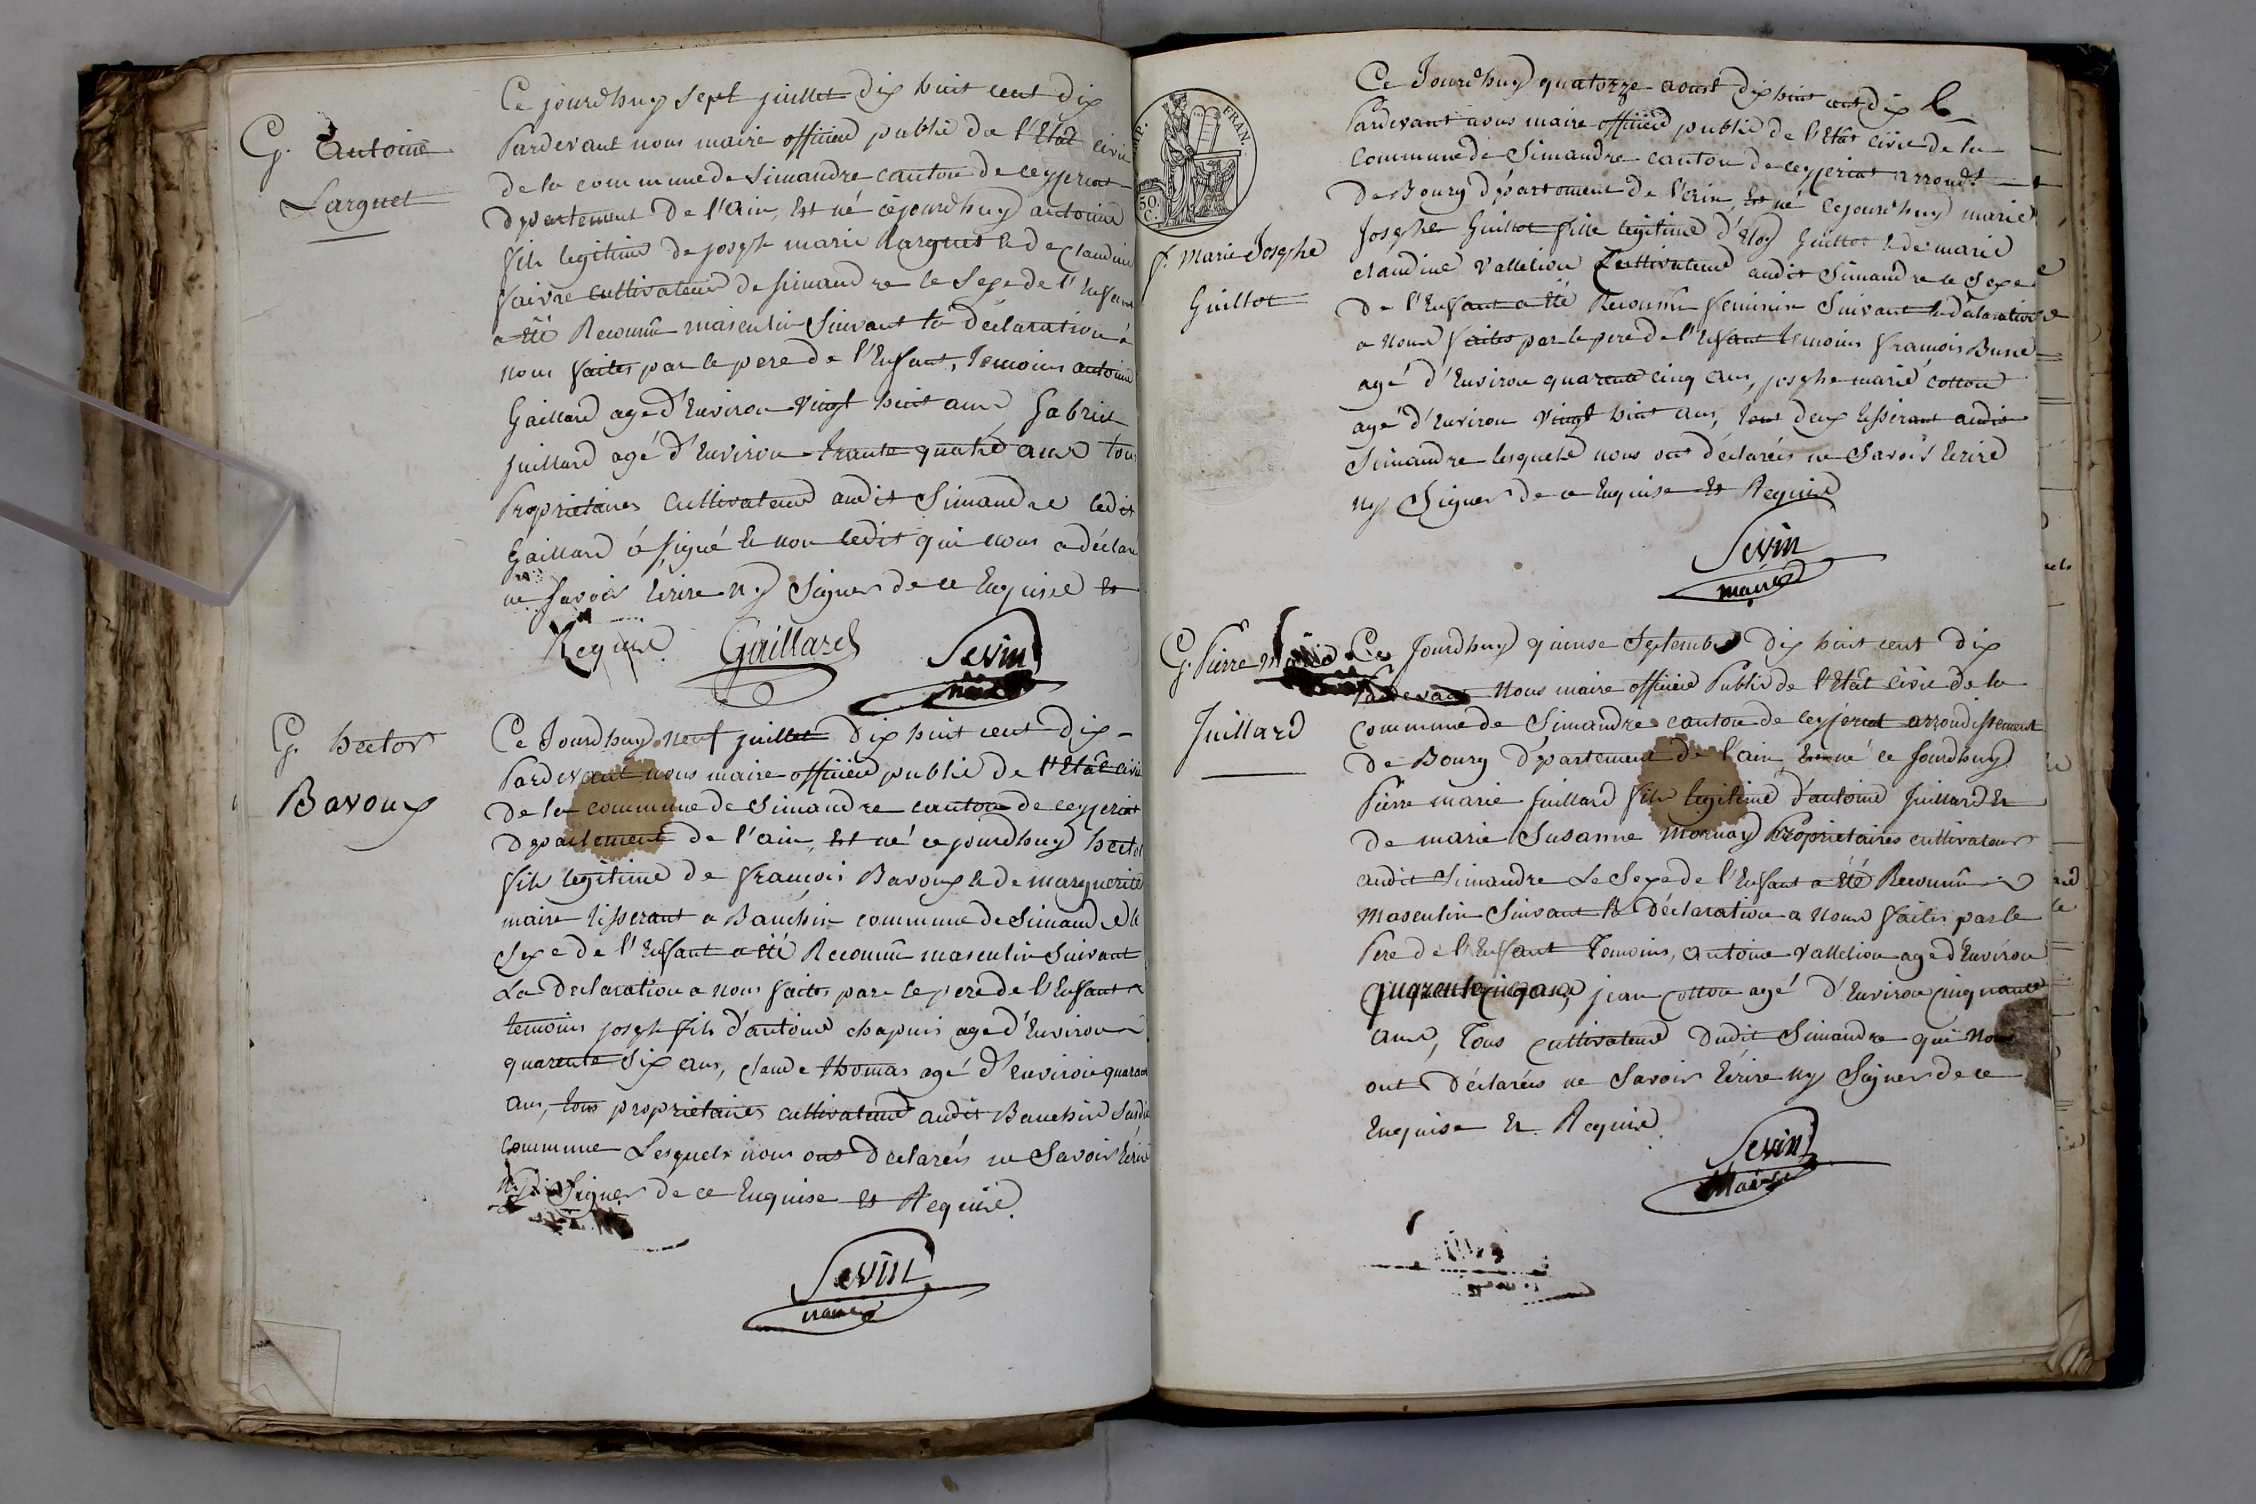 Ce jourdhuy sept juillet dix huit cent dix
G. Antoine
Larguet
Pardevant nous maire officier public de l'Etat civil
de la commune de Simandre canton de ceyzeriat
département De l'Ain, Est né cejourdhuy antoine
fils legitime de joseph marie Larguet & de Claudine
faivre cultivateur de simandre le Sexe de l'Enfant
a été Reconnu masculin Suivant la déclaration à
nous faites par le pere de l'Enfant, Temoins antoine
Gaillard agé d'Environ vingt huit ans Gabriel
juillard agé d'Environ trante quatre ans tous
Propriétaires Cultivateurs audit Simandre ledit
Gaillard à signé & non ledit qui nous a déclaré
ne savoir Ecrire ny Signer de ce Enquise et
Requise Gaillard Sevin
maire
G. hector
Bavoux
Ce Jourdhuy neuf juillet Dix huit cent dix
Pardevant nous maire officier public de l'Etat civil
De la commune de Simandre canton de ceyzeriat
Département de l'ain, Est né cejourdhuy hector
fils legitime de françois Bavoux & de marguerite
maire tisserant a Bauchin commune de Simandre le
Sexe de l'Enfant a été Reconnu masculin Suivant
La Déclaration a nous faites par le pere de l'Enfant
temoins joseph fils d'antoine chapuis agé d'Environ
quarente Six ans, claude thomas agé d'Environ quarante
ans, tous propriétaires cultivateurs audit Bauchin Susdite
commune Lesquels nous ont Déclarés ne Savoir Ecrire
ny Signer de ce Enquise et Requise.
Sevin
maire
FRAN.
50.
C.
Ce Jourdhuy quatorze aoust dix huit cent dix
Pardevant nous maire officier public de l'Etat civil de la
commune de Simandre canton de ceyzeriat arrondt
De Bourg département De l'ain, Est né cejourdhuy marie
f. Marie Josephe
Guillot
Josephe Guillot fille legitime d'Eloy Guillot & de marie
claudine Vallelion Cultivateurs audit Simandre le Sexe
de l'Enfant a été Reconnu feminin Suivant la déclaration
a Nous faites par le pere de l'Enfant temoins françois
agé d'Environ quarente cinq ans, josephe marie cotton
agé d'Environ vingt huit ans, tout deux tisserant audit
Simandre lesquels nous ont déclarés ne Savoir Ecrire
ny Signer de ce Enquise et Requise
Sevin
maire
G. Pierre Marie
Juillard
Ce Jourdhuy quinse Septembre dix huit cent dix
Pardevant Nous maire officier Public de l'Etat civil de la
commune de Simandre canton de ceyzeriat arrondissement
de Bourg Département de l'ain, Est né ce Jourdhuy
Pierre marie Juillard fils legitime d'antoine Juillard &
de marie Susanne Mornay Propriétaires cultivateurs
audit Simandre Le Sexe de l'Enfant a été Reconnu
Masculin Suivant la Déclaration a Nous faites par le
Pere de l'Enfant Temoins, antoine Vallelion agé d'Environ
quarente cinq ans, jean cotton agé d'Environ cinquante
ans, Tous cultivateurs Dudit Simandre qui Nous
ont Déclarés ne Savoir Ecrire ny Signer de ce
Enquise Et Requise
Sevin
Maire